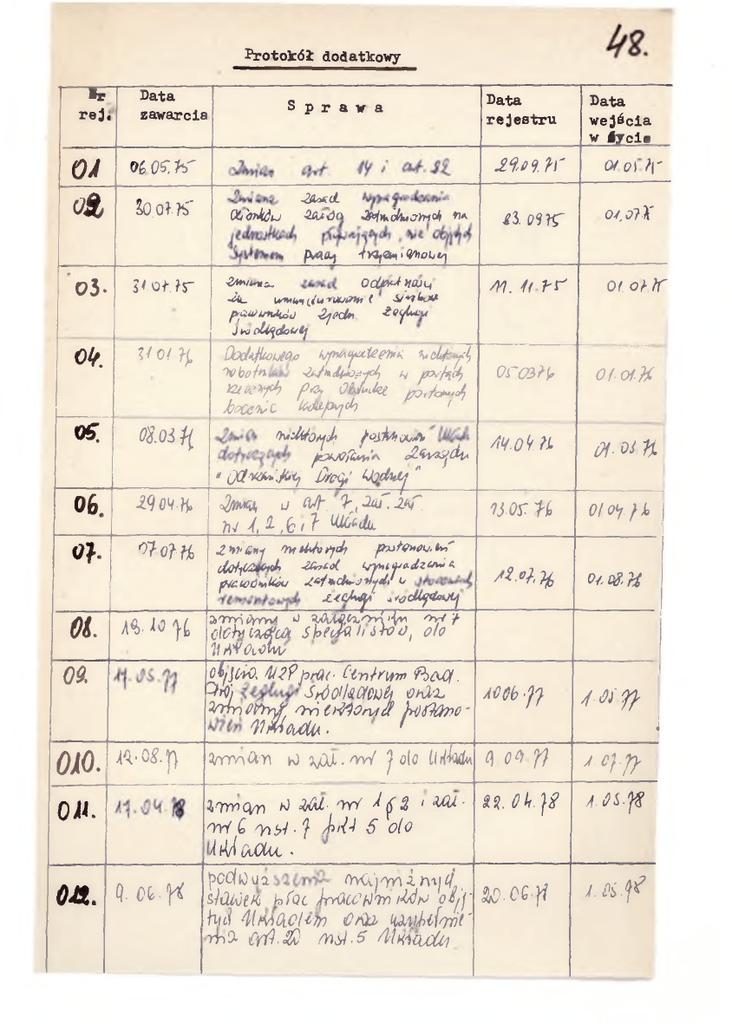 48.
Protokół dodatkowy
Nr rej. Data zawarcia Sprawa Data rejestru Data wejścia w życie
01 06.05.75 Zmian art. 14 i art. 22 29.09.75 01.05.75
02 30 07.75 Zmiana zasad wynagradzania
członków załóg zatrudnionych na
jednostkach pływających, nie objętych 23.0975 01.07.75
systemem pracy trzyzmianowej
03. 31 07.75 zmiana zasad odpłatności 11. 11.75 01.07.75
za umundurowanie służbowe
pracowników Zjedn. Żeglugi
Śródlądowej
04. 31 01 76 Dodatkowego wynagrodzenia niektórych
robotników zatrudnionych w portach 05 0376 01.01.76
rzecznych przy obsłudze portowych
bocznic kolejowych
05. 08.03.76 Zmian niektórych postanowień Układu 14.04 76 01.03 76
dotyczących powołania Zarządu
"Odrzańskiej Drogi Wodnej"
06. 29 04.76 Zmian w art 7, zał. zał. 13.05. 76 01 04 76
nr 1, 2, 6 i 7 Układu
07. 07 07 76 zmiany niektórych postanowień
dotyczących zasad wynagradzania
pracowników zatrudnionych w stoczniach 12.07.76 01.08.76
remontowych żeglugi śródlądowej
08. 19. 10 76 zmiany w załączniku nr 7
dotyczącą specjalistów, do
Układu
09. 17.05.77 objęcia UZP prac. Centrum Bad.
Żeglugi Śródlądowej oraz 1006.77 1.05.77
zmiany niektórych postano-
wień Układu.
010. 12.08.77 zmian w zał. nr 7 do Układu 9.09.77 1.07.77
011. 17.04.78 zmian w zał. nr 1 § 2 i zał. 22.04.78 1.05.78
nr 6 ust. 7 pkt 5 do
Układu.
012. 9.06.78 podwyższenia najniższych
stawek płac pracowników obję- 20.06.78 1.05.78
tych Układem oraz uzupełnie-
nia art. 20 ust. 5 Układu